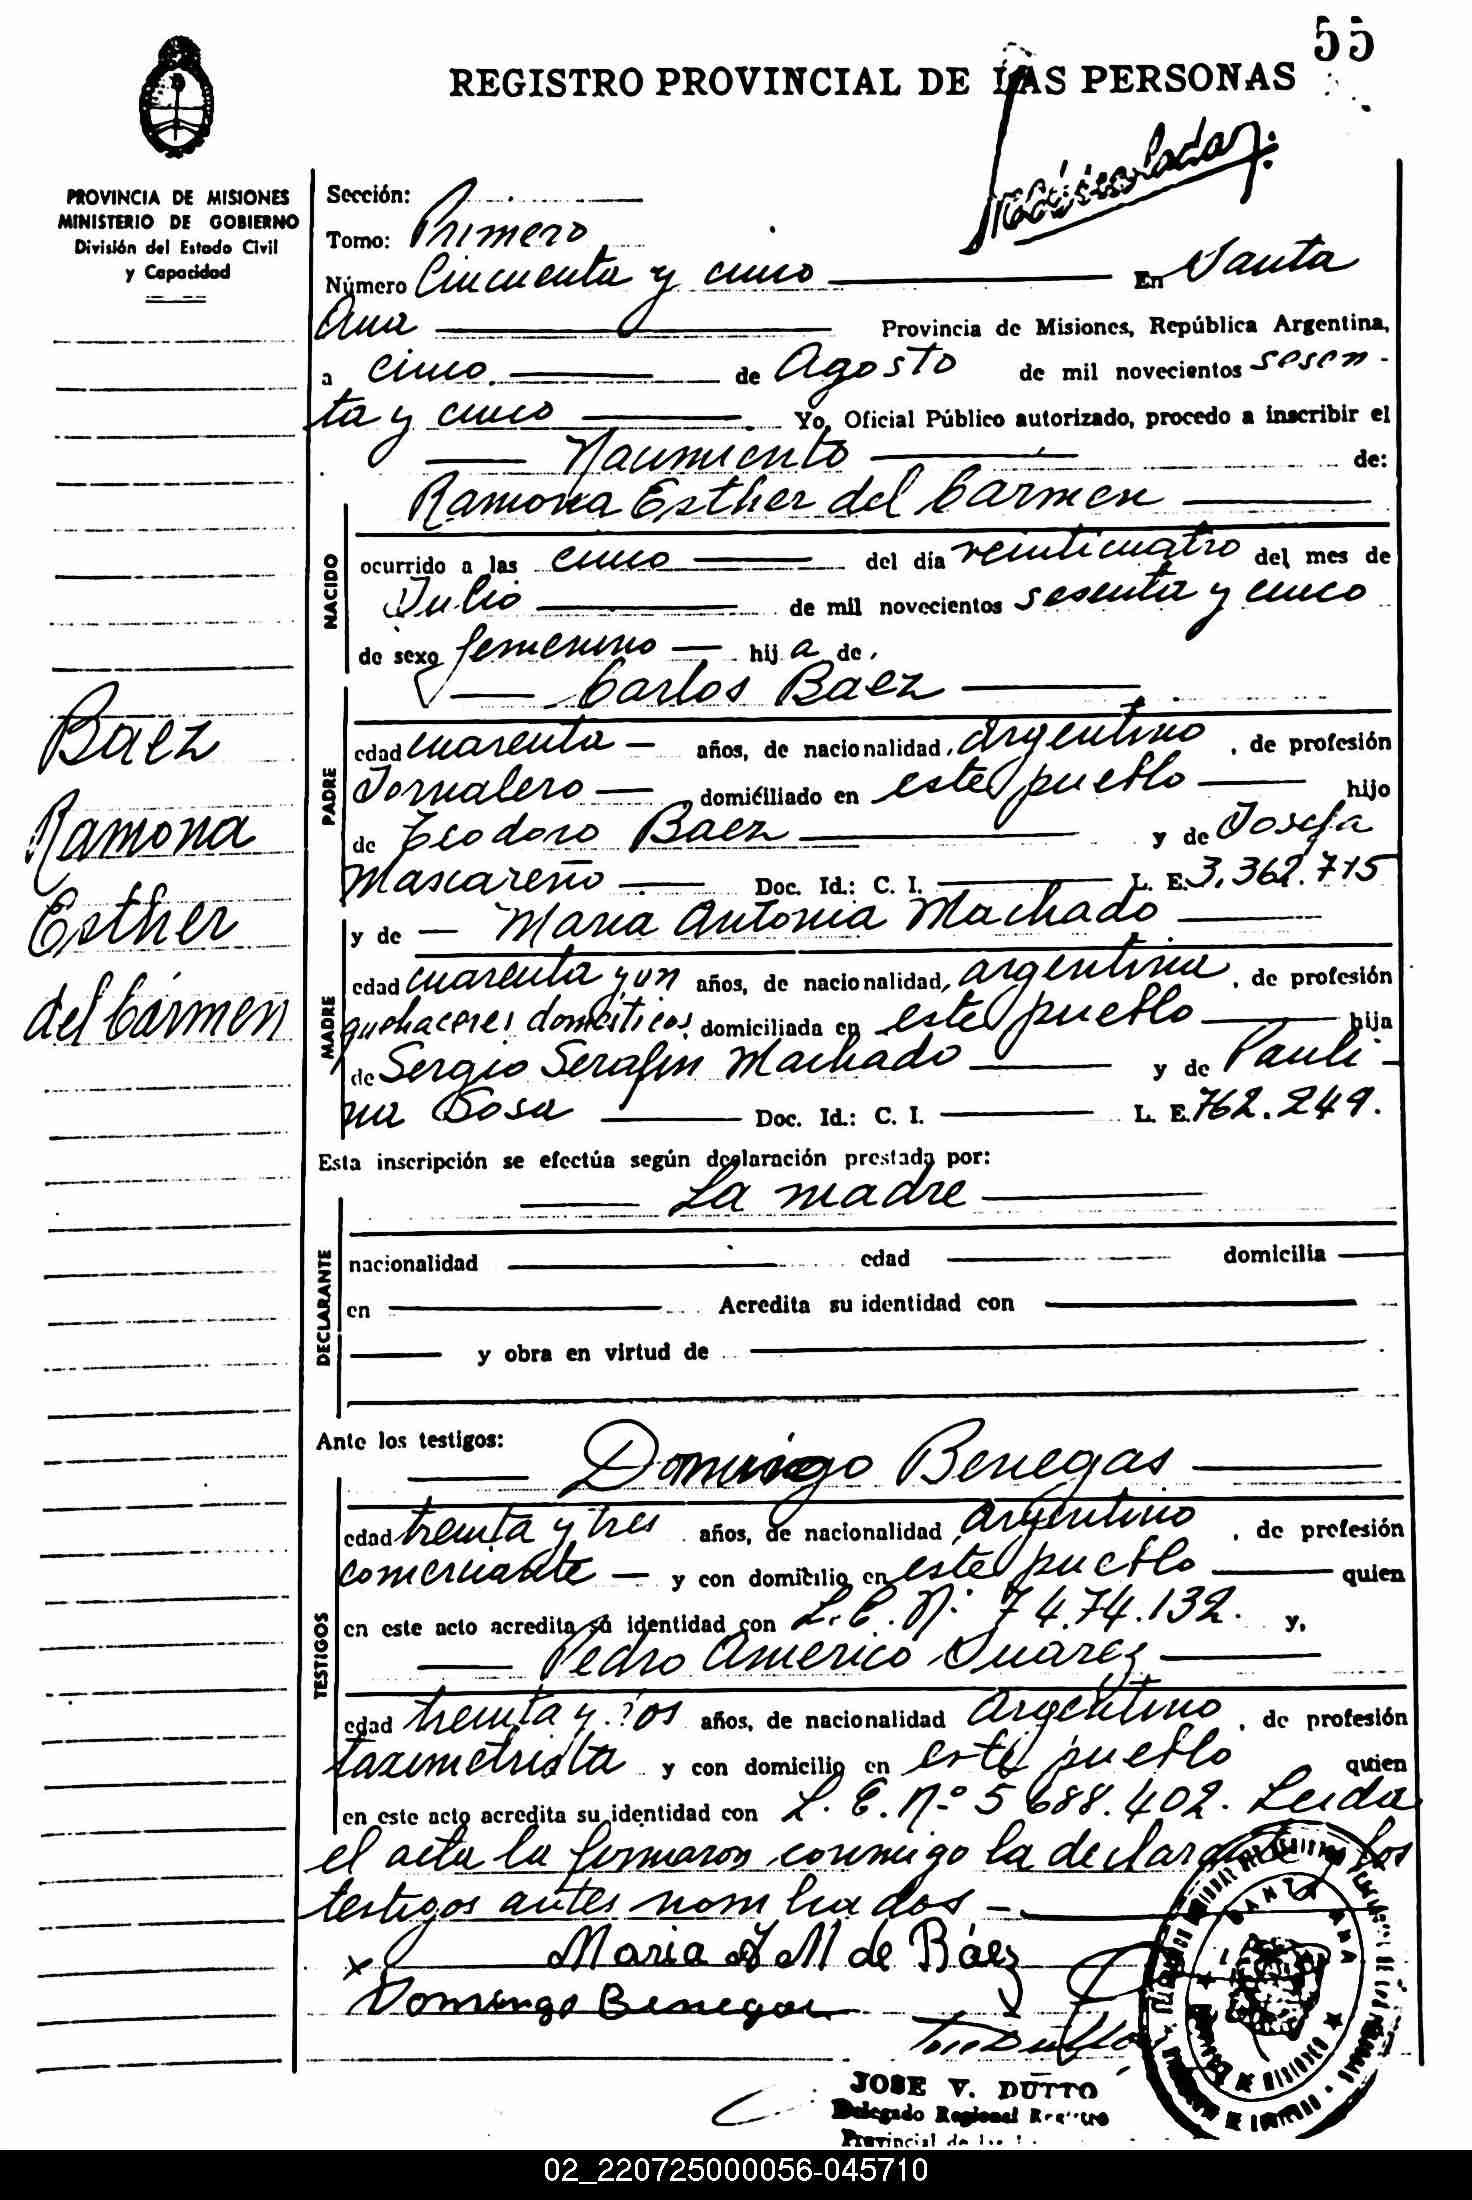 55
REGISTRO PROVINCIAL DE LAS PERSONAS
PROVINCIA DE MISIONES
MINISTERIO DE GOBIERNO
División del Estado Civil
y Capacidad
Sección:
Tomo: Primero
Número Cincuenta y cinco En Santa
Ana Provincia de Misiones, República Argentina,
a cinco de Agosto de mil novecientos sesen-
ta y cinco Yo, Oficial Público autorizado, procedo a inscribir el
Nacimiento de:
Ramona Esther del Carmen
NACIDO
ocurrido a las cinco del día veinticuatro del mes de
Julio de mil novecientos sesenta y cinco
de sexo femenino hija de,
Carlos Baez
Baez
Ramona
Esther
del Cármen
PADRE
edad cuarenta años, de nacionalidad, argentino, de profesión
Jornalero domiciliado en este pueblo hijo
de Teodoro Baez y de Josefa
Mascareño Doc. Id.: C. I. L. E. 3.362.715
y de Maria Antonia Machado
MADRE
edad cuarenta y un años, de nacionalidad, argentina, de profesión
quehaceres domésticos domiciliada en este pueblo hija
de Sergio Serafin Machado y de Pauli-
na Sosa Doc. Id.: C. I. L. E. 762.249.
Esta inscripción se efectúa según declaración prestada por:
La madre
DECLARANTE
nacionalidad edad domicilia
en Acredita su identidad con
y obra en virtud de
Ante los testigos:
Domingo Benegas
TESTIGOS
edad treinta y tres años, de nacionalidad argentino, de profesión
comerciante y con domicilio en este pueblo quien
en este acto acredita su identidad con L.E. N: 7474.132. y,
Pedro Americo Suarez
edad treinta y años, de nacionalidad argentino, de profesión
taximetrista y con domicilio en este pueblo quien
en este acto acredita su identidad con L. E. N:º 5688.402. Leida
el acta la firmaron conmigo la declarante los
testigos antes nombrados
x Maria A M de Báez
Domingo Benegas
SANTA ANA
MISIONES
JOSE V. DUTTO
Delegado Regional Registro
Provincial de las
02_220725000056-045710